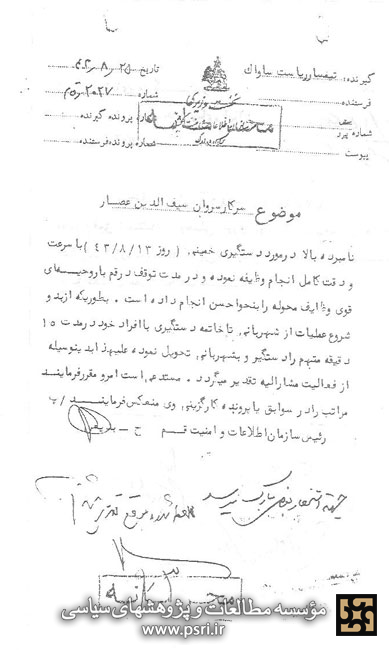 گیرنده: تیمسار ریاست ساواک
تاریخ
فرستنده
نخست وزیری
شماره ۲۰۲۷/قم
شماره پیرو
شماره پرونده گیرنده
پیوست
شماره پرونده فرستنده
موضوع سرکار سروان سیف الدین عصار
نامبرده بالا در مورد دستگیری خمینی ( روز ۴۳/۸/۱۳ ) با سرعت
و دقت کامل انجام وظیفه نموده و در مدت توقف در قم با روحیه‌ای
قوی وظایف محوله را بنحو احسن انجام داده است . بطوریکه از بدو
شروع عملیات از شهربانی تا خاتمه دستگیری با افراد خود در مدت ۱۵
دقیقه متهم را دستگیر و بشهربانی تحویل نموده علیهذا بدینوسیله
از فعالیت مشارالیه تقدیر میگردد . مستدعی است امر و مقرر فرمایند
مراتب را در سوابق یا پرونده کارگزینی وی منعکس فرمایند /ب
رئیس سازمان اطلاعات و امنیت قم ح – بدیعی
جهت استحضار
مؤسسه مطالعات و پژوهشهای سیاسی
www.psri.ir